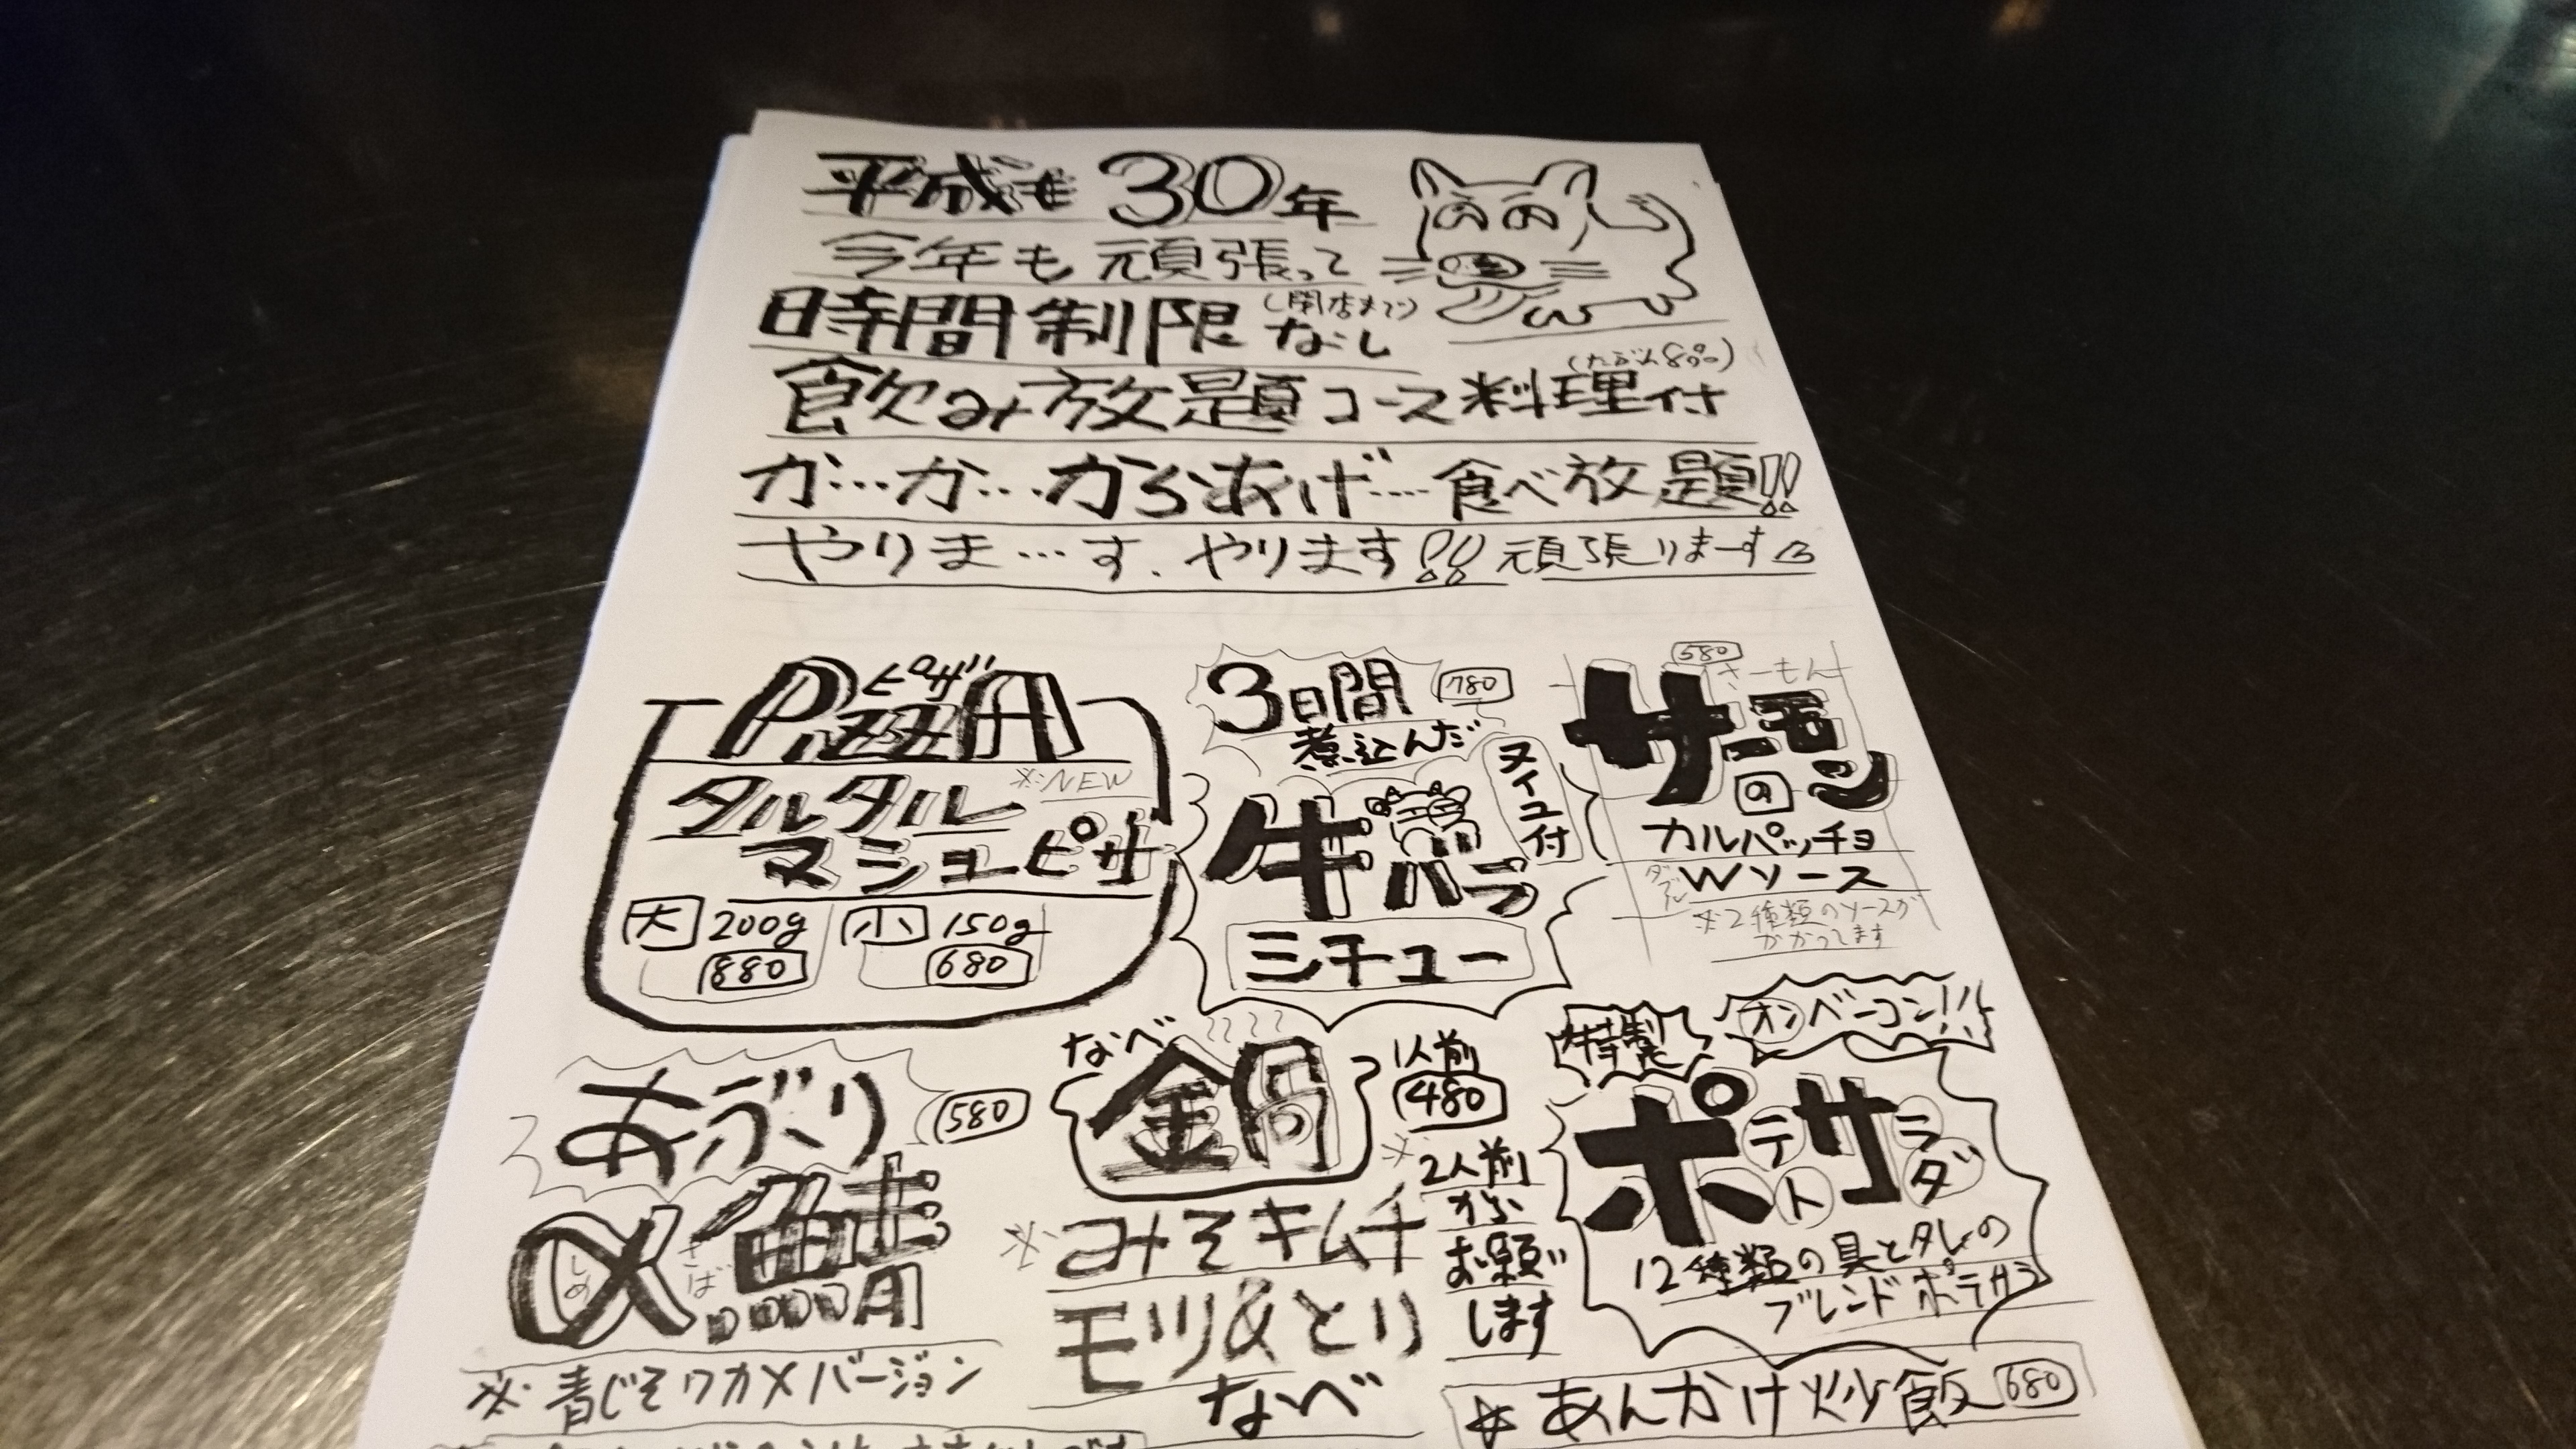 平成も30年
今年も頑張って
時間制限なし
(閉店まで)
飲み放題コース料理付
(たぶん8品)
か…か…からあげ…食べ放題!!
やりま…す、やります!! 頑張りまーす
ピザ
PizzA
※NEW
タルタル
マヨコーンピザ
大 200g 小 150g
880 680
3日間 780
煮込んだ
牛バラ
シチュー
580
さーもん
サーモンの
カルパッチョ
Wソース
ダブル
※2種類のソースが
かかってます
あぶり 580
〆鯖
しめ さば
※青じそワカメバージョン
なべ
鍋
1人前
480
※2人前
から
お願い
します
※みそキムチ
モツ&とり
なべ
特製
オンベーコン!!
ポテトサラダ
12種類の具とタレの
ブレンドポテサラ
☆あんかけ炒飯 680